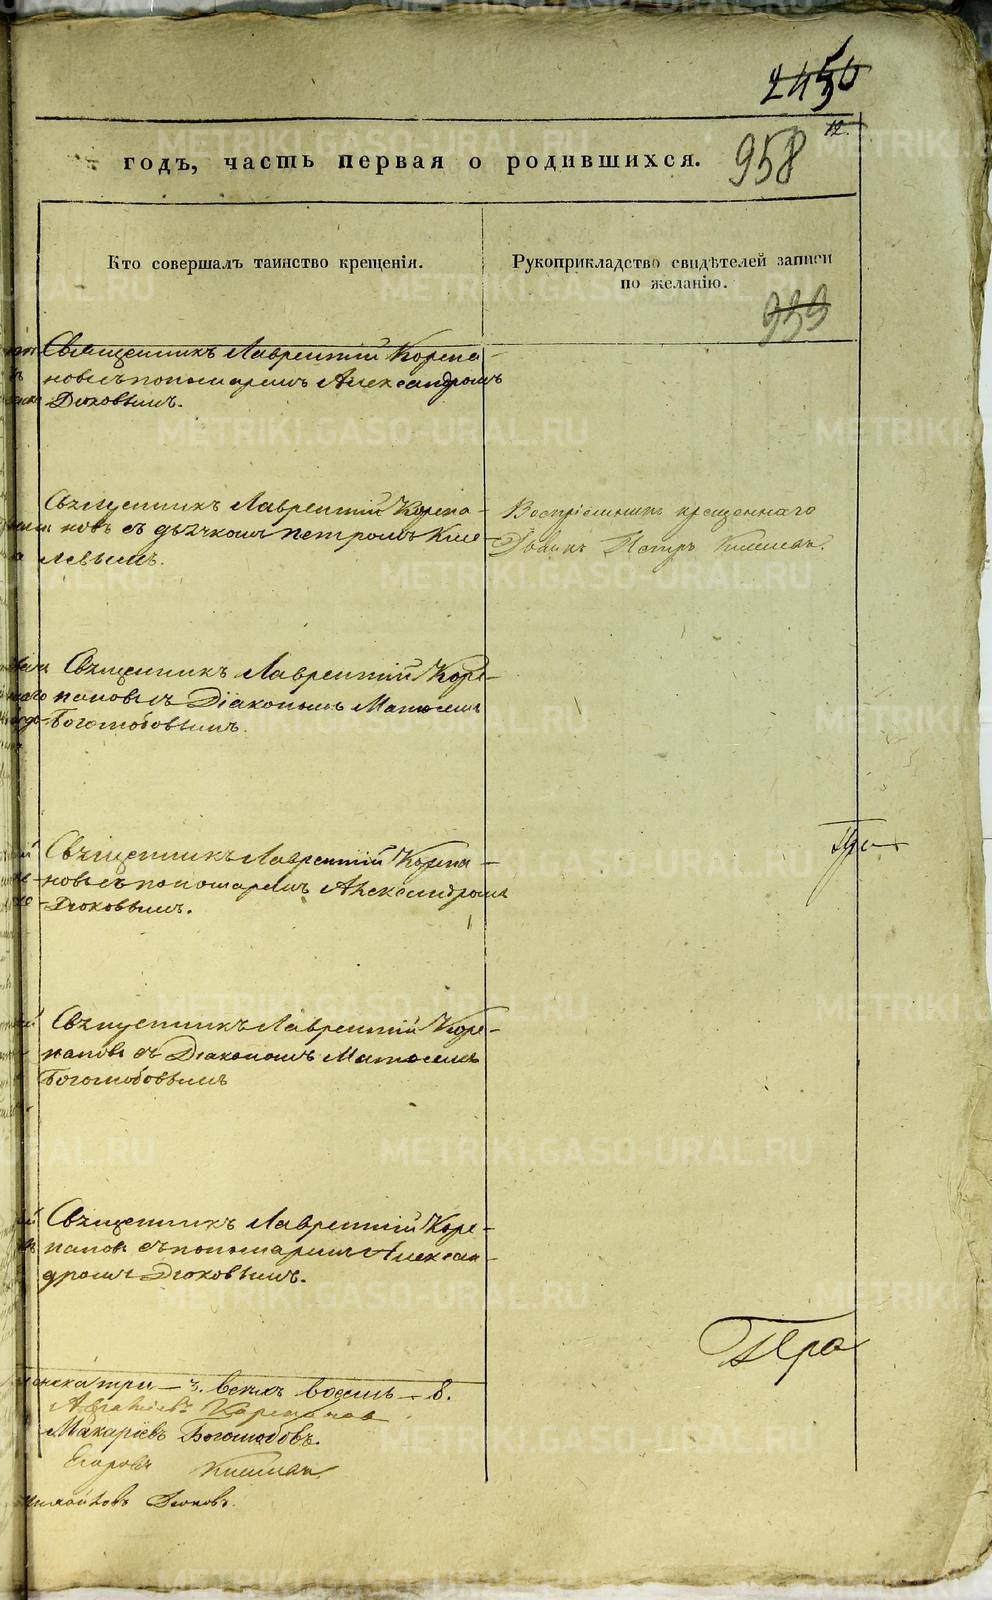 2450
12.
958
годъ, часть первая о родившихся.
Кто совершалъ таинство крещенія.
Рукоприкладство свидѣтелей записи
по желанію.
939
Священникъ Лаврентій Корепа-
новъ съ пономаремъ Александромъ
Дюковымъ.
Священникъ Лаврентій Корепа-
новъ съ дьячкомъ Петромъ Кие-
левымъ.
Воспріемникъ крещеннаго
Дьячкъ Петръ
Священникъ Лаврентій Коре-
пановъ съ Діакономъ Матѳеемъ
Боголюбовымъ.
Священникъ Лаврентій Корепа-
новъ съ пономаремъ Александромъ
Дюковымъ.
Священникъ Лаврентій Коре-
пановъ съ Діакономъ Матѳеемъ
Боголюбовымъ
Священникъ Лаврентій Коре-
пановъ съ пономаремъ Алексан-
дромъ Дюковымъ.
три - 3. всѣхъ восемь - 8.
Корепановъ
Макаріевъ Боголюбовъ.
Егоровъ
Дюковъ.
METRIKI.GASO-URAL.RU